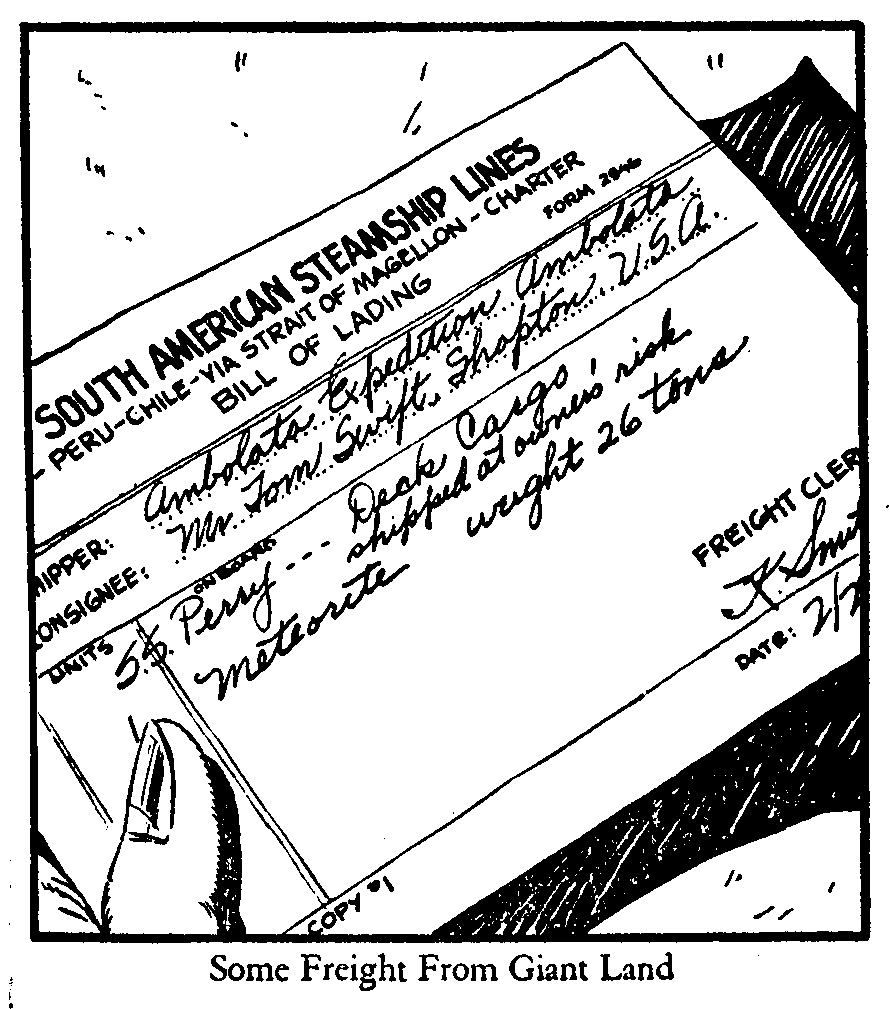 SOUTH AMERICAN STEAMSHIP LINES
- PERU-CHILE-VIA STRAIT OF MAGELLON-CHARTER
BILL OF LADING
FORM 2946
HIPPER: Ambolata Expedition Ambolata
ONSIGNEE: Mr. Tom Swift, Shopton, U.S.A.
UNITS
ON BOARD
S.S. Perry --- Deck Cargo
shipped at owners' risk
Meteorite weight 26 tons
FREIGHT CLER
K. Smit
DATE: 2/2
COPY #1
Some Freight From Giant Land